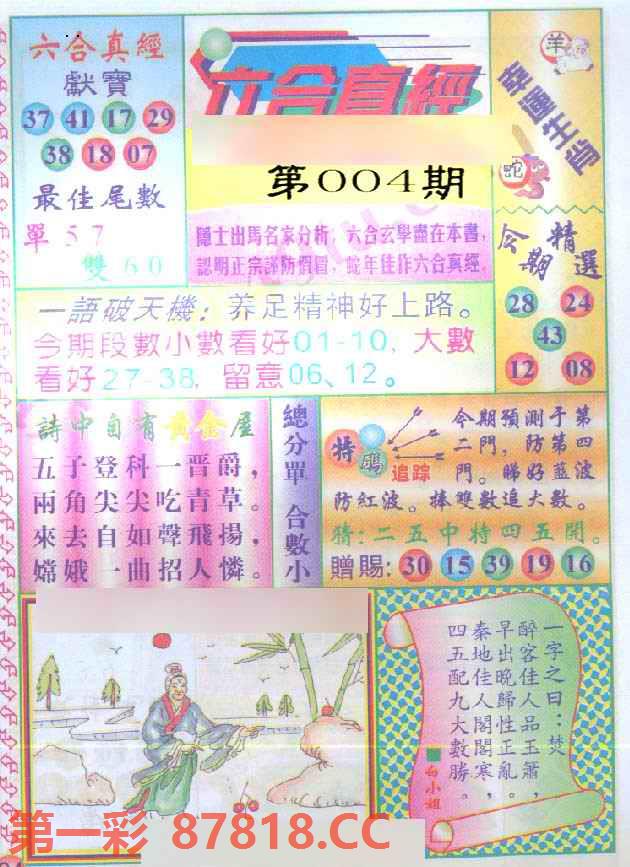 六合真經
獻寶
37 41 17 29
38 18 07
最佳尾數
單 57
雙 60
六合真經
第004期
隱士出馬名家分析，六合玄學盡在本書，
認明正宗謹防假冒，蛇年佳作六合真經。
羊
幸運生肖
蛇
今期精選
28 24
43
12 08
一語破天機：养足精神好上路。
今期段數小數看好01-10，大數
看好27-38，留意06、12。
詩中自有黃金屋
五子登科一晋爵，
兩角尖尖吃青草。
來去自如聲飛揚，
嫦娥一曲招人憐。
總分單 合數小
特碼
追踪
今期預測于第
二門，防第四
門。睇好藍波
防紅波。捧雙數追大數。
猜：二五中特四五開。
贈賜：30 15 39 19 16
一字之曰：焚
醉客佳人品玉簫，
早出晚歸性正亂。
秦地佳人閣閣寒，
四五配九大數勝。
白小姐
第一彩 87818.CC